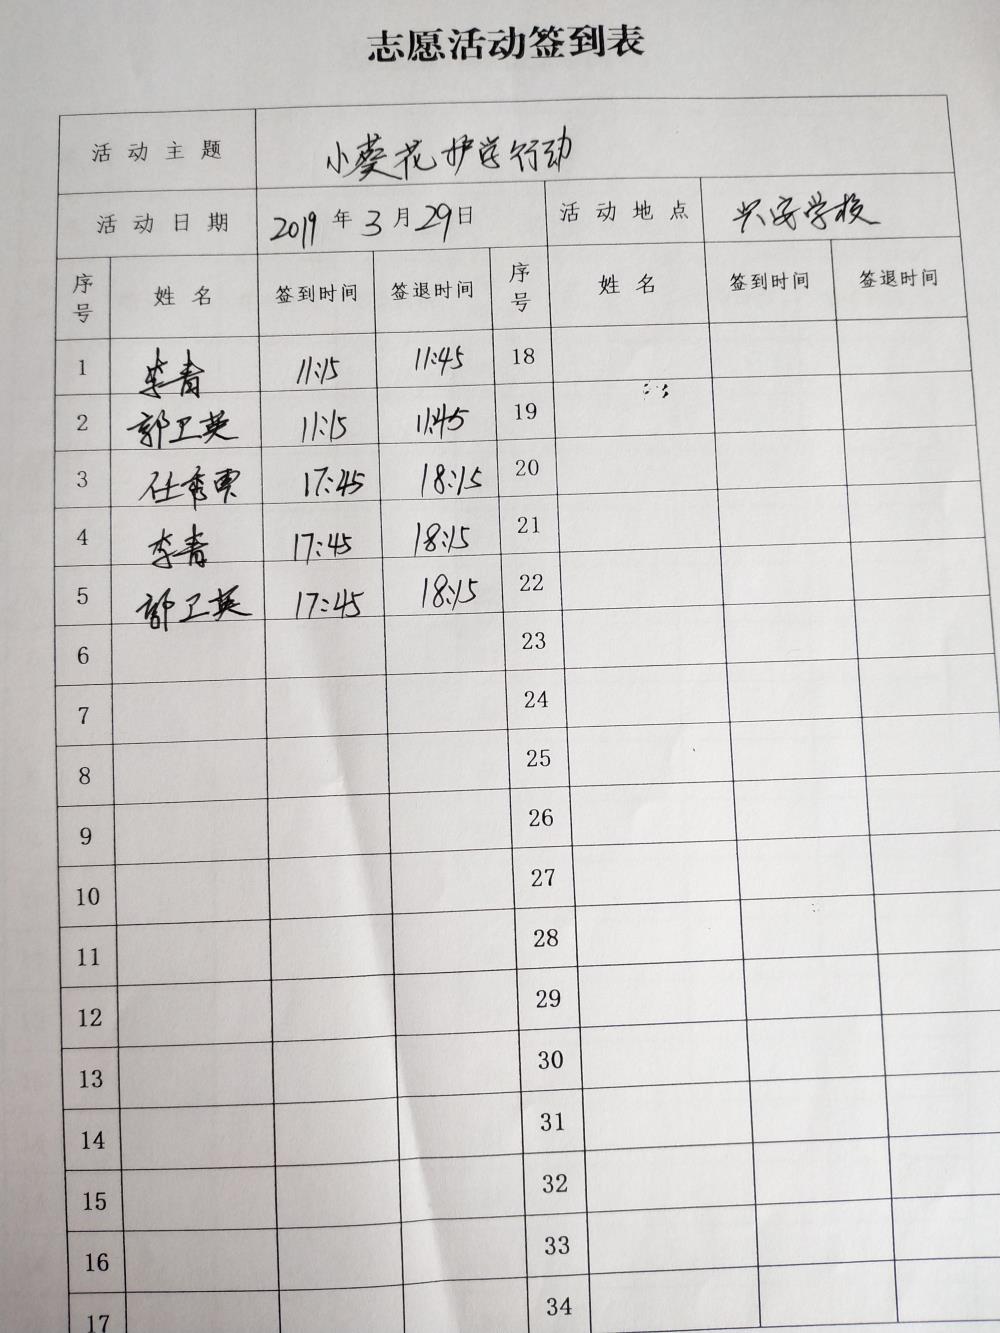 志愿活动签到表
活动主题 小葵花护学行动
活动日期 2019年3月29日 活动地点 兴安学校
序号 姓名 签到时间 签退时间 序号 姓名 签到时间 签退时间
1 李青 11:15 11:45 18
2 郭卫英 11:15 11:45 19
3 任秀 17:45 18:15 20
4 李青 17:45 18:15 21
5 郭卫英 17:45 18:15 22
6 23
7 24
8 25
9 26
10 27
11 28
12 29
13 30
14 31
15 32
16 33
17 34